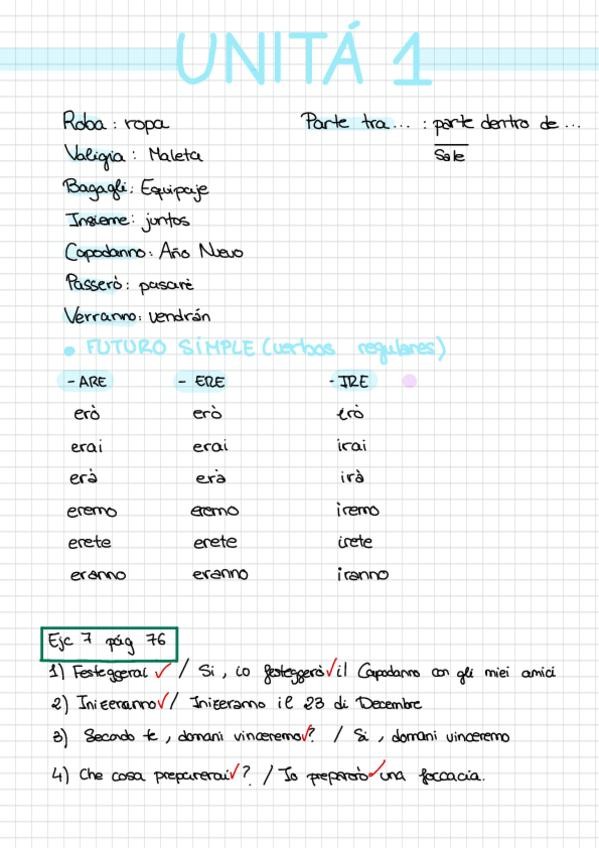 UNITÁ 1
Roba: ropa
Parte tra... : parte dentro de ...
Sale
Valigia: Maleta
Bagagli: Equipaje
Insieme: juntos
Capodanno: Año Nuevo
Passerò: pasaré
Verranno: vendrán
• FUTURO SIMPLE (verbos regulares)
-ARE - ERE - IRE
erò erò irò
erai erai irai
erà erà irà
eremo eremo iremo
erete erete irete
eranno eranno iranno
Ejc 7 pág 76
1) Festeggerai ✓ / Si, io festeggerò ✓ il Capodanno con gli miei amici
2) Inizeranno ✓ / Inizeranno il 23 di Decembre
3) Secondo te, domani vinceremo ✓? / Si, domani vinceremo
4) Che cosa preparerai ✓? / Io preparerò ✓ una foccacia.